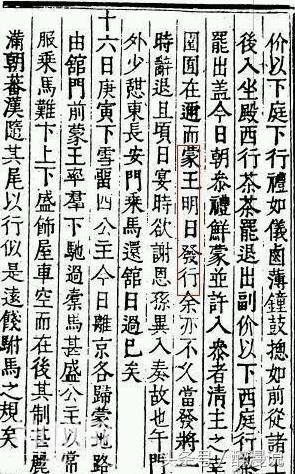 价以下庭行禮如儀鹵薄鐘皷如前從諸
後入坐殿西行茶茶罷退出副价以下西庭行茶
罷出盖今日朝叅禮鮮蒙並許入叅者清主之
圍在邇而蒙王明日發行余亦不久當發將
時辭退且頃日宴時欲謝恩孫異入奏故也午門
外少憇東長安門乘馬還舘日過巳矣
十六日庚寅下雪留四公主今日離京各歸蒙地路
由舘門前蒙王率羣下馳過橐馬甚盛公主以常
服乘馬難下上下盛飾屋車空而在後其制甚麗
滿朝蕃漢隨其尾以行似是遠餞駙馬之規矣